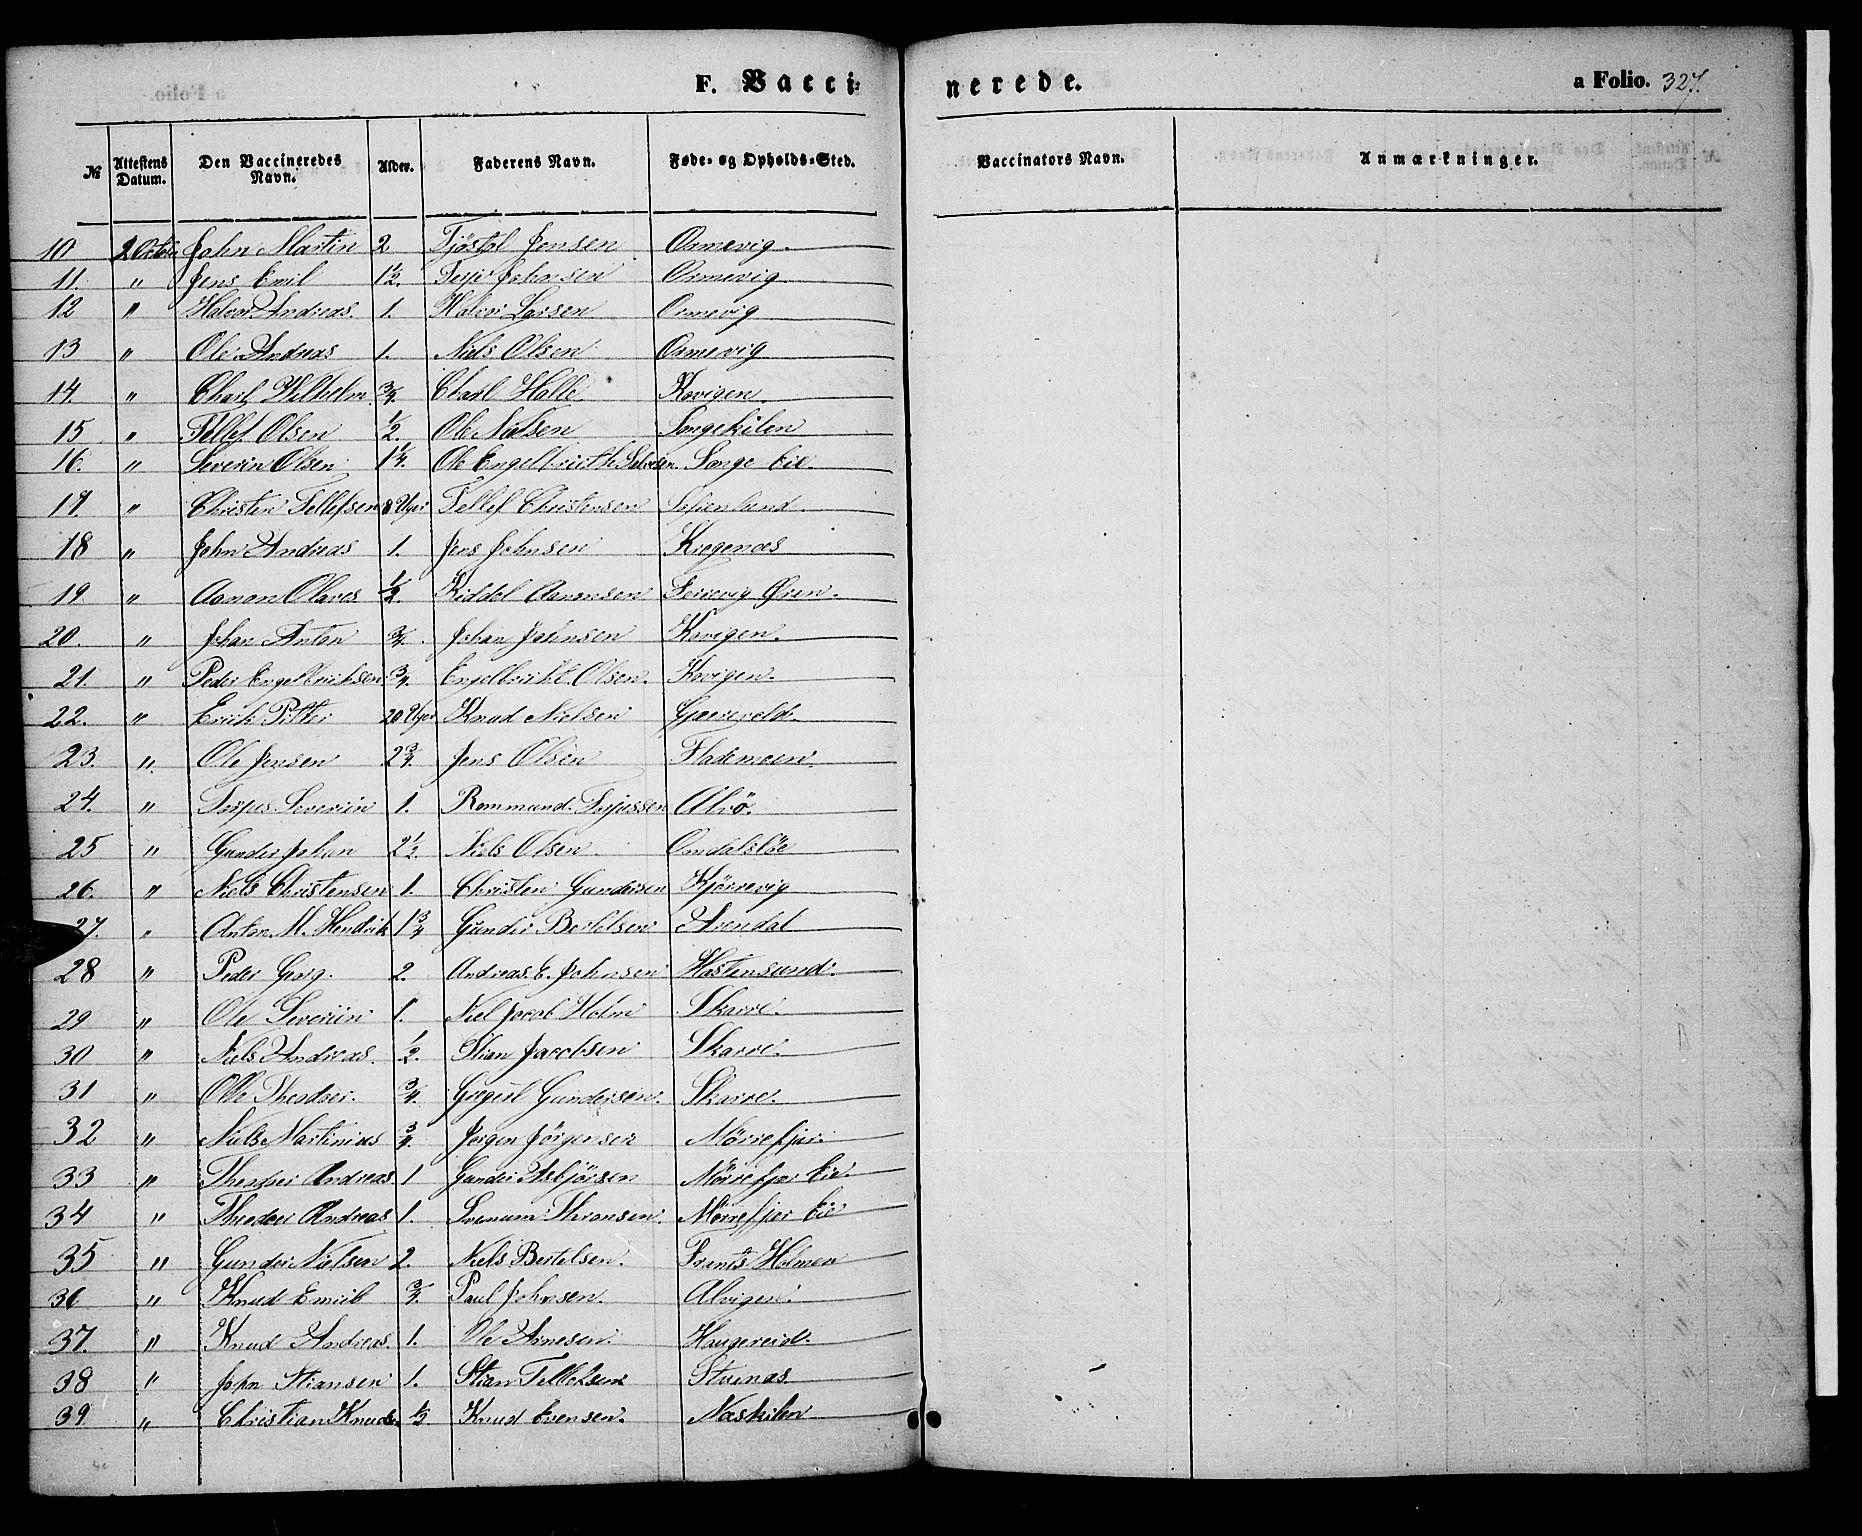 F. Vacci-
nerede.
a Folio. 327.
№ Attestens Datum. Den Vaccineredes Navn. Alder. Faderens Navn. Føde- og Opholds-Sted. Vaccinators Navn. Anmærkninger.
10 2 Octob. John Martin 2 Tjöstol Jensen Ormevig.
11. " Jens Emil 1½. Terje Johnsen Ormevig
12 " Halvor Andreas. 1. Halvor Larsen Ormevig
13 " Ole Andreas 1. Niels Olsen Ormevig
14. " Charl Vilhelm ¾. Charl Halle Kovigen.
15 " Tellef Olsen ½. Ole Nielsen Songekilen
16. " Severin Olsen 1¼. Ole Engelbrecth Songe Eie.
17. " Christen Tellefsen 8 Uger Tellef Christensen
18 " John Andreas 1. Jens Johnsen Kregenæs
19 " Aanon Olaves ½. Kiddel Aanonsen Øren.
20. " Johan Anton ¾. Johan Johnsen Kovigen.
21. " Peder Engelbrichsen ¾. Engelbricht Olsen. Kovigen.
22. " Erich Pitter 20 Uger Knud Nielsen
23. " Ole Jensen 2¾. Jens Olsen Flademoen.
24. " Terjus Severin 1. Rommund Terjussen Alvö.
25 " Gunder Johan 2½. Niels Olsen Omdalsöe
26. " Niels Christensen 1. Christen Gundersen Kjörrevig
27. " Anton M. Hendrik 1¾ Gunder Bertelsen Arendal
28 " Peder Georg. 2. Andreas E. Johnsen Hastensund.
29 " Ole Severiin 1. Niel Jacob Holm Skarre.
30 " Niels Andreas. ½. Stian Jacobsen Skarre.
31 " Olle Theodor. ¾. Gundersen. Skarre.
32 " Niels Martinius ¾. Jörgen Jörgensen Mörrefjær.
33 " Theodor Andreas. 1 Gunder Asbjörsen Mörrefjær Eie.
34 " Theodor Andreas 1. Mörrefjær Eie
35 " Gunder Nielsen 2. Niels Bertelsen. Frants Holmen
36 " Knud Emil ¾. Paul Johnsen. Alvigen.
37. " Knud Andreas. 1. Ole Arnesen. Haugereid.
38 " John Stiansen 1. Stian Tellefsen Stuenæs.
39 " Christian Knuds. ½ Knud Evensen. Næskilen